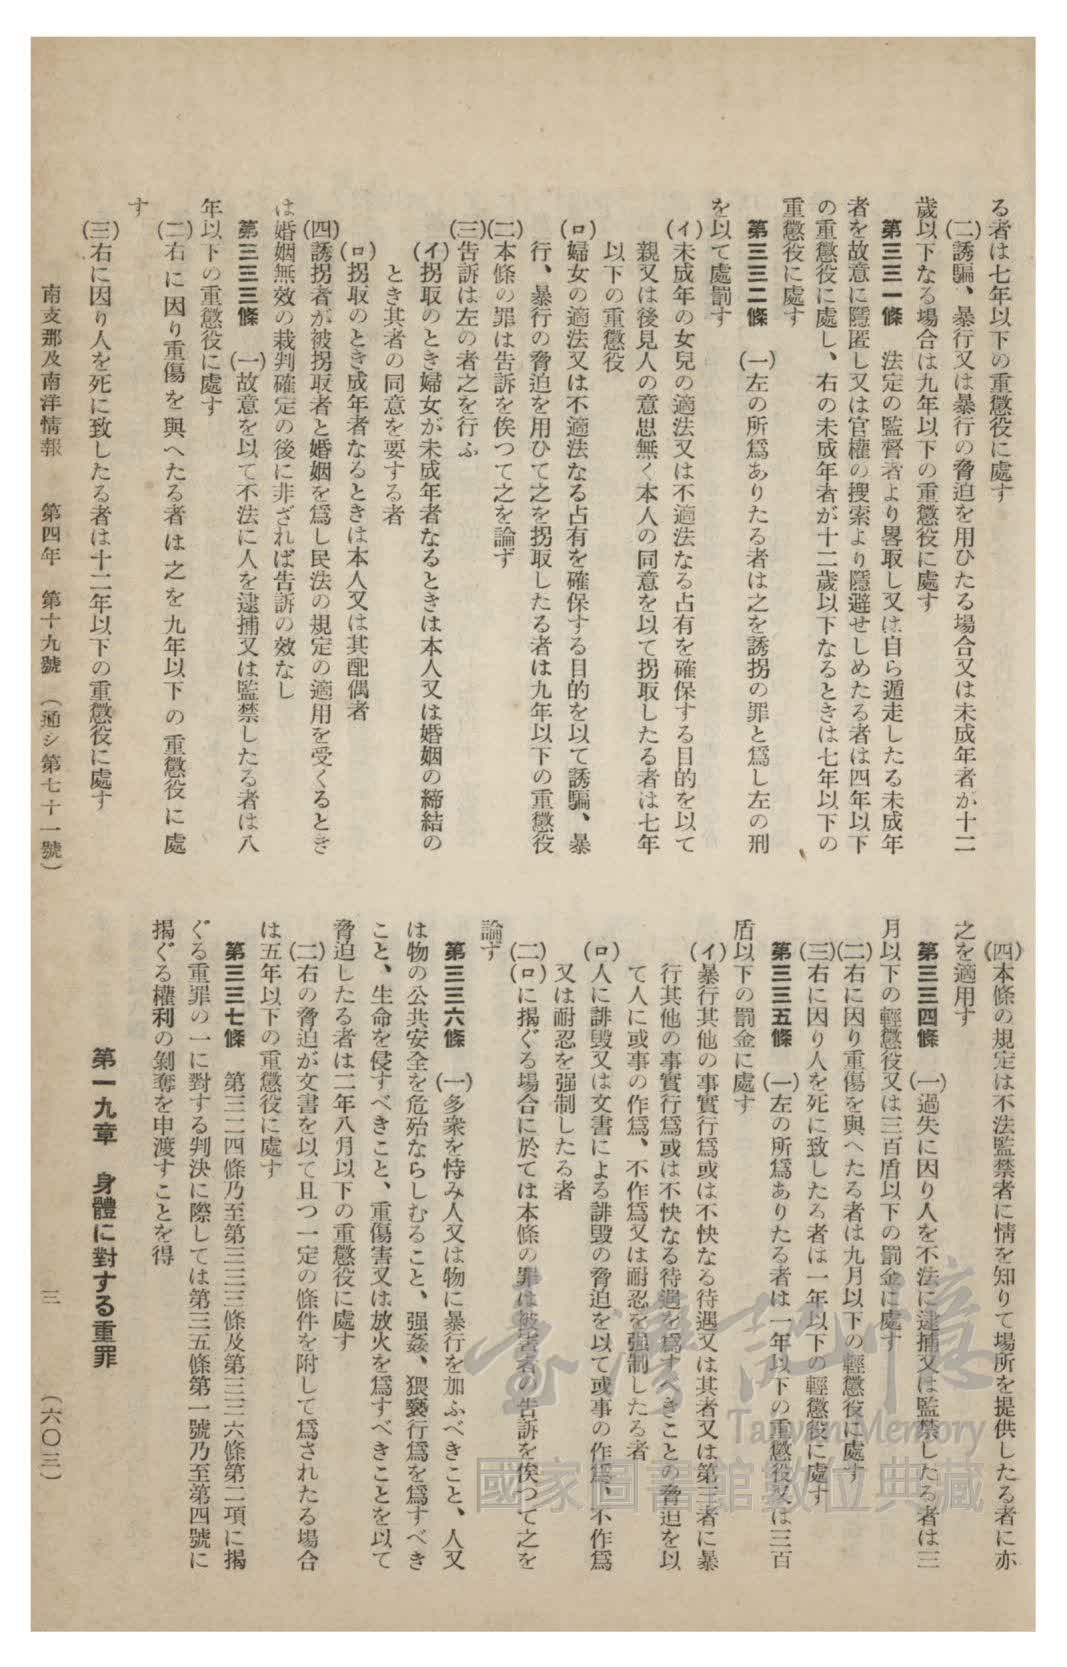 る者は七年以下の重懲役に處す
(二)誘騙、暴行又は暴行の脅迫を用ひたる場合又は未成年者が十二
歲以下なる場合は九年以下の重懲役に處す
第三三一條　法定の監督者より畧取し又は自ら遁走したる未成年
者を故意に隱匿し又は官權の搜索より隱避せしめたる者は四年以下
の重懲役に處し、右の未成年者が十二歲以下なるときは七年以下の
重懲役に處す
第三三二條　(一)左の所爲ありたる者は之を誘拐の罪と爲し左の刑
を以て處罰す
(イ)未成年の女兒の適法又は不適法なる占有を確保する目的を以て
親又は後見人の意思無く本人の同意を以て拐取したる者は七年
以下の重懲役
(ロ)婦女の適法又は不適法なる占有を確保する目的を以て誘騙、暴
行、暴行の脅迫を用ひて之を拐取したる者は九年以下の重懲役
(二)本條の罪は告訴を俟つて之を論ず
(三)告訴は左の者之を行ふ
(イ)拐取のとき婦女が未成年者なるときは本人又は婚姻の締結の
とき其者の同意を要する者
(ロ)拐取のとき成年者なるときは本人又は其配偶者
(四)誘拐者が被拐取者と婚姻を爲し民法の規定の適用を受くるとき
は婚姻無效の裁判確定の後に非ざれば告訴の效なし
第三三三條　(一)故意を以て不法に人を逮捕又は監禁したる者は八
年以下の重懲役に處す
(二)右に因り重傷を與へたる者は之を九年以下の重懲役に處
す
(三)右に因り人を死に致したる者は十二年以下の重懲役に處す
(四)本條の規定は不法監禁者に情を知りて場所を提供したる者に亦
之を適用す
第三三四條　(一)過失に因り人を不法に逮捕又は監禁したる者は三
月以下の輕懲役又は三百盾以下の罰金に處す
(二)右に因り重傷を與へたる者は九月以下の輕懲役に處す
(三)右に因り人を死に致したる者は一年以下の輕懲役に處す
第三三五條　(一)左の所爲ありたる者は一年以下の重懲役又は三百
盾以下の罰金に處す
(イ)暴行其他の事實行爲或は不快なる待遇又は其者又は第三者に暴
行其他の事實行爲或は不快なる待遇を爲すべきことの脅迫を以
て人に或事の作爲、不作爲又は耐忍を强制したる者
(ロ)人に誹毀又は文書による誹毀の脅迫を以て或事の作爲、不作爲
又は耐忍を强制したる者
(二)(ロ)に揭ぐる場合に於ては本條の罪は被害者の告訴を俟つて之を
論ず
第三三六條　(一)多衆を恃み人又は物に暴行を加ふべきこと、人又
は物の公共安全を危殆ならしむること、强姦、猥褻行爲を爲すべき
こと、生命を侵すべきこと、重傷害又は放火を爲すべきことを以て
脅迫したる者は二年八月以下の重懲役に處す
(二)右の脅迫が文書を以て且つ一定の條件を附して爲されたる場合
は五年以下の重懲役に處す
第三三七條　第三二四條乃至第三三三條及第三三六條第二項に揭
ぐる重罪の一に對する判決に際しては第三五條第一號乃至第四號に
揭ぐる權利の剝奪を申渡すことを得
第一九章　身體に對する重罪
南支那及南洋情報　第四年　第十九號　(通シ第七十一號)
三　(六〇三)
臺灣記憶
Taiwan Memory
國家圖書館數位典藏